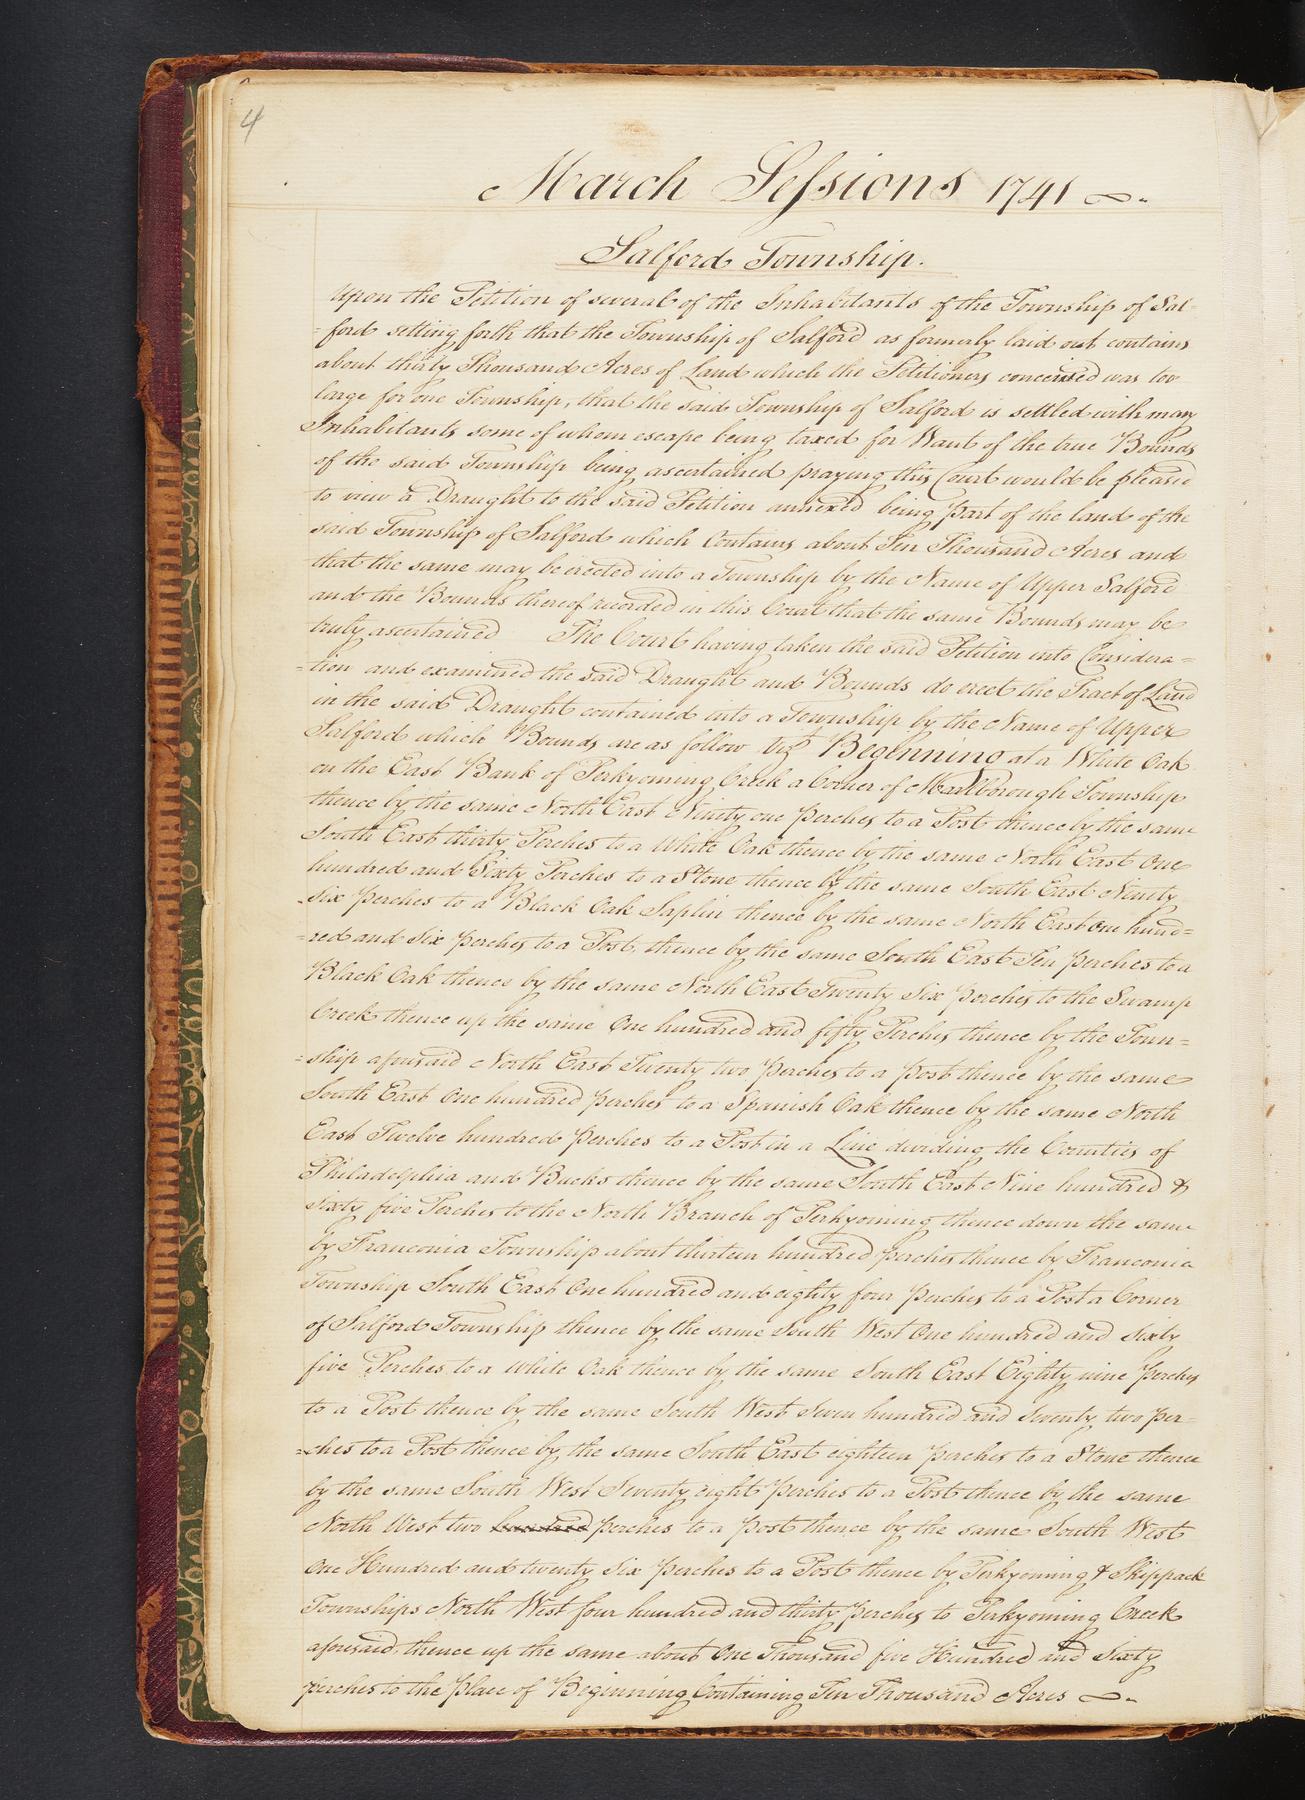 4
March Sessions 1741
Salford Township.
Upon the Petition of several of the Inhabitants of the Township of Sal-
=ford setting forth that the Township of Salford as formerly laid out contains
about thirty Thousand Acres of Land which the Petitioners conceived was too
large for one Township, that the said Township of Salford is settled with many
Inhabitants some of whom escape being taxed for Want of the true Bounds
of the said Township being ascertained praying this Court would be pleased
to view a Draught to the said Petition annexed being part of the land of the
said Township of Salford which Contains about Ten Thousand Acres and
that the same may be erected into a Township by the Name of Upper Salford
and the Bounds thereof recorded in this Court that the same Bounds may be
truly ascertained The Court having taken the said Petition into Considera=
=tion and examined the said Draught and Bounds do erect the Tract of Land
in the said Draught contained into a Township by the Name of Upper
Salford which Bounds are as follow vizt Beginning at a White Oak
on the East Bank of Perkyoming Creek a Corner of Marlborough Township
thence by the same North East Ninety one perches to a Post thence by the same
South East thirty Perches to a White Oak thence by the same North East One
hundred and Sixty Perches to a Stone thence by the same South East Ninety
Six perches to a Black Oak Saplin thence by the same North East One hund=
=red and Six perches to a Post, thence by the same South East Ten perches to a
Black Oak thence by the same North East Twenty Six perches to the Swamp
Creek thence up the same One hundred and fifty Perches thence by the Town=
=ship aforesaid North East Twenty two perches to a post thence by the same
South East One hundred perches to a Spanish Oak thence by the same North
East Twelve hundred perches to a Post in a Line dividing the Counties of
Philadelphia and Bucks thence by the same South East Nine hundred &
sixty five Perches to the North Branch of Perkyoming thence down the same
by Franconia Township about thirteen hundred perches thence by Franconia
Township South East One hundred and eighty four perches to a Post a Corner
of Salford Township thence by the same South West One hundred and Sixty
five Perches to a White Oak thence by the same South East Eighty nine perches
to a Post thence by the same South West Seven hundred and Seventy two per-
=ches to a Post thence by the same South East eighteen perches to a Stone thence
by the same South West Seventy eight perches to a Post thence by the same
North West two hundred perches to a post thence by the same South West
One Hundred and twenty Six perches to a Post thence by Perkyoming & Skippack
Townships North West four hundred and thirty perches to Perkyoming Creek
aforesaid, thence up the same about One Thousand five Hundred and Sixty
perches to the place of Beginning Containing Ten Thousand Acres